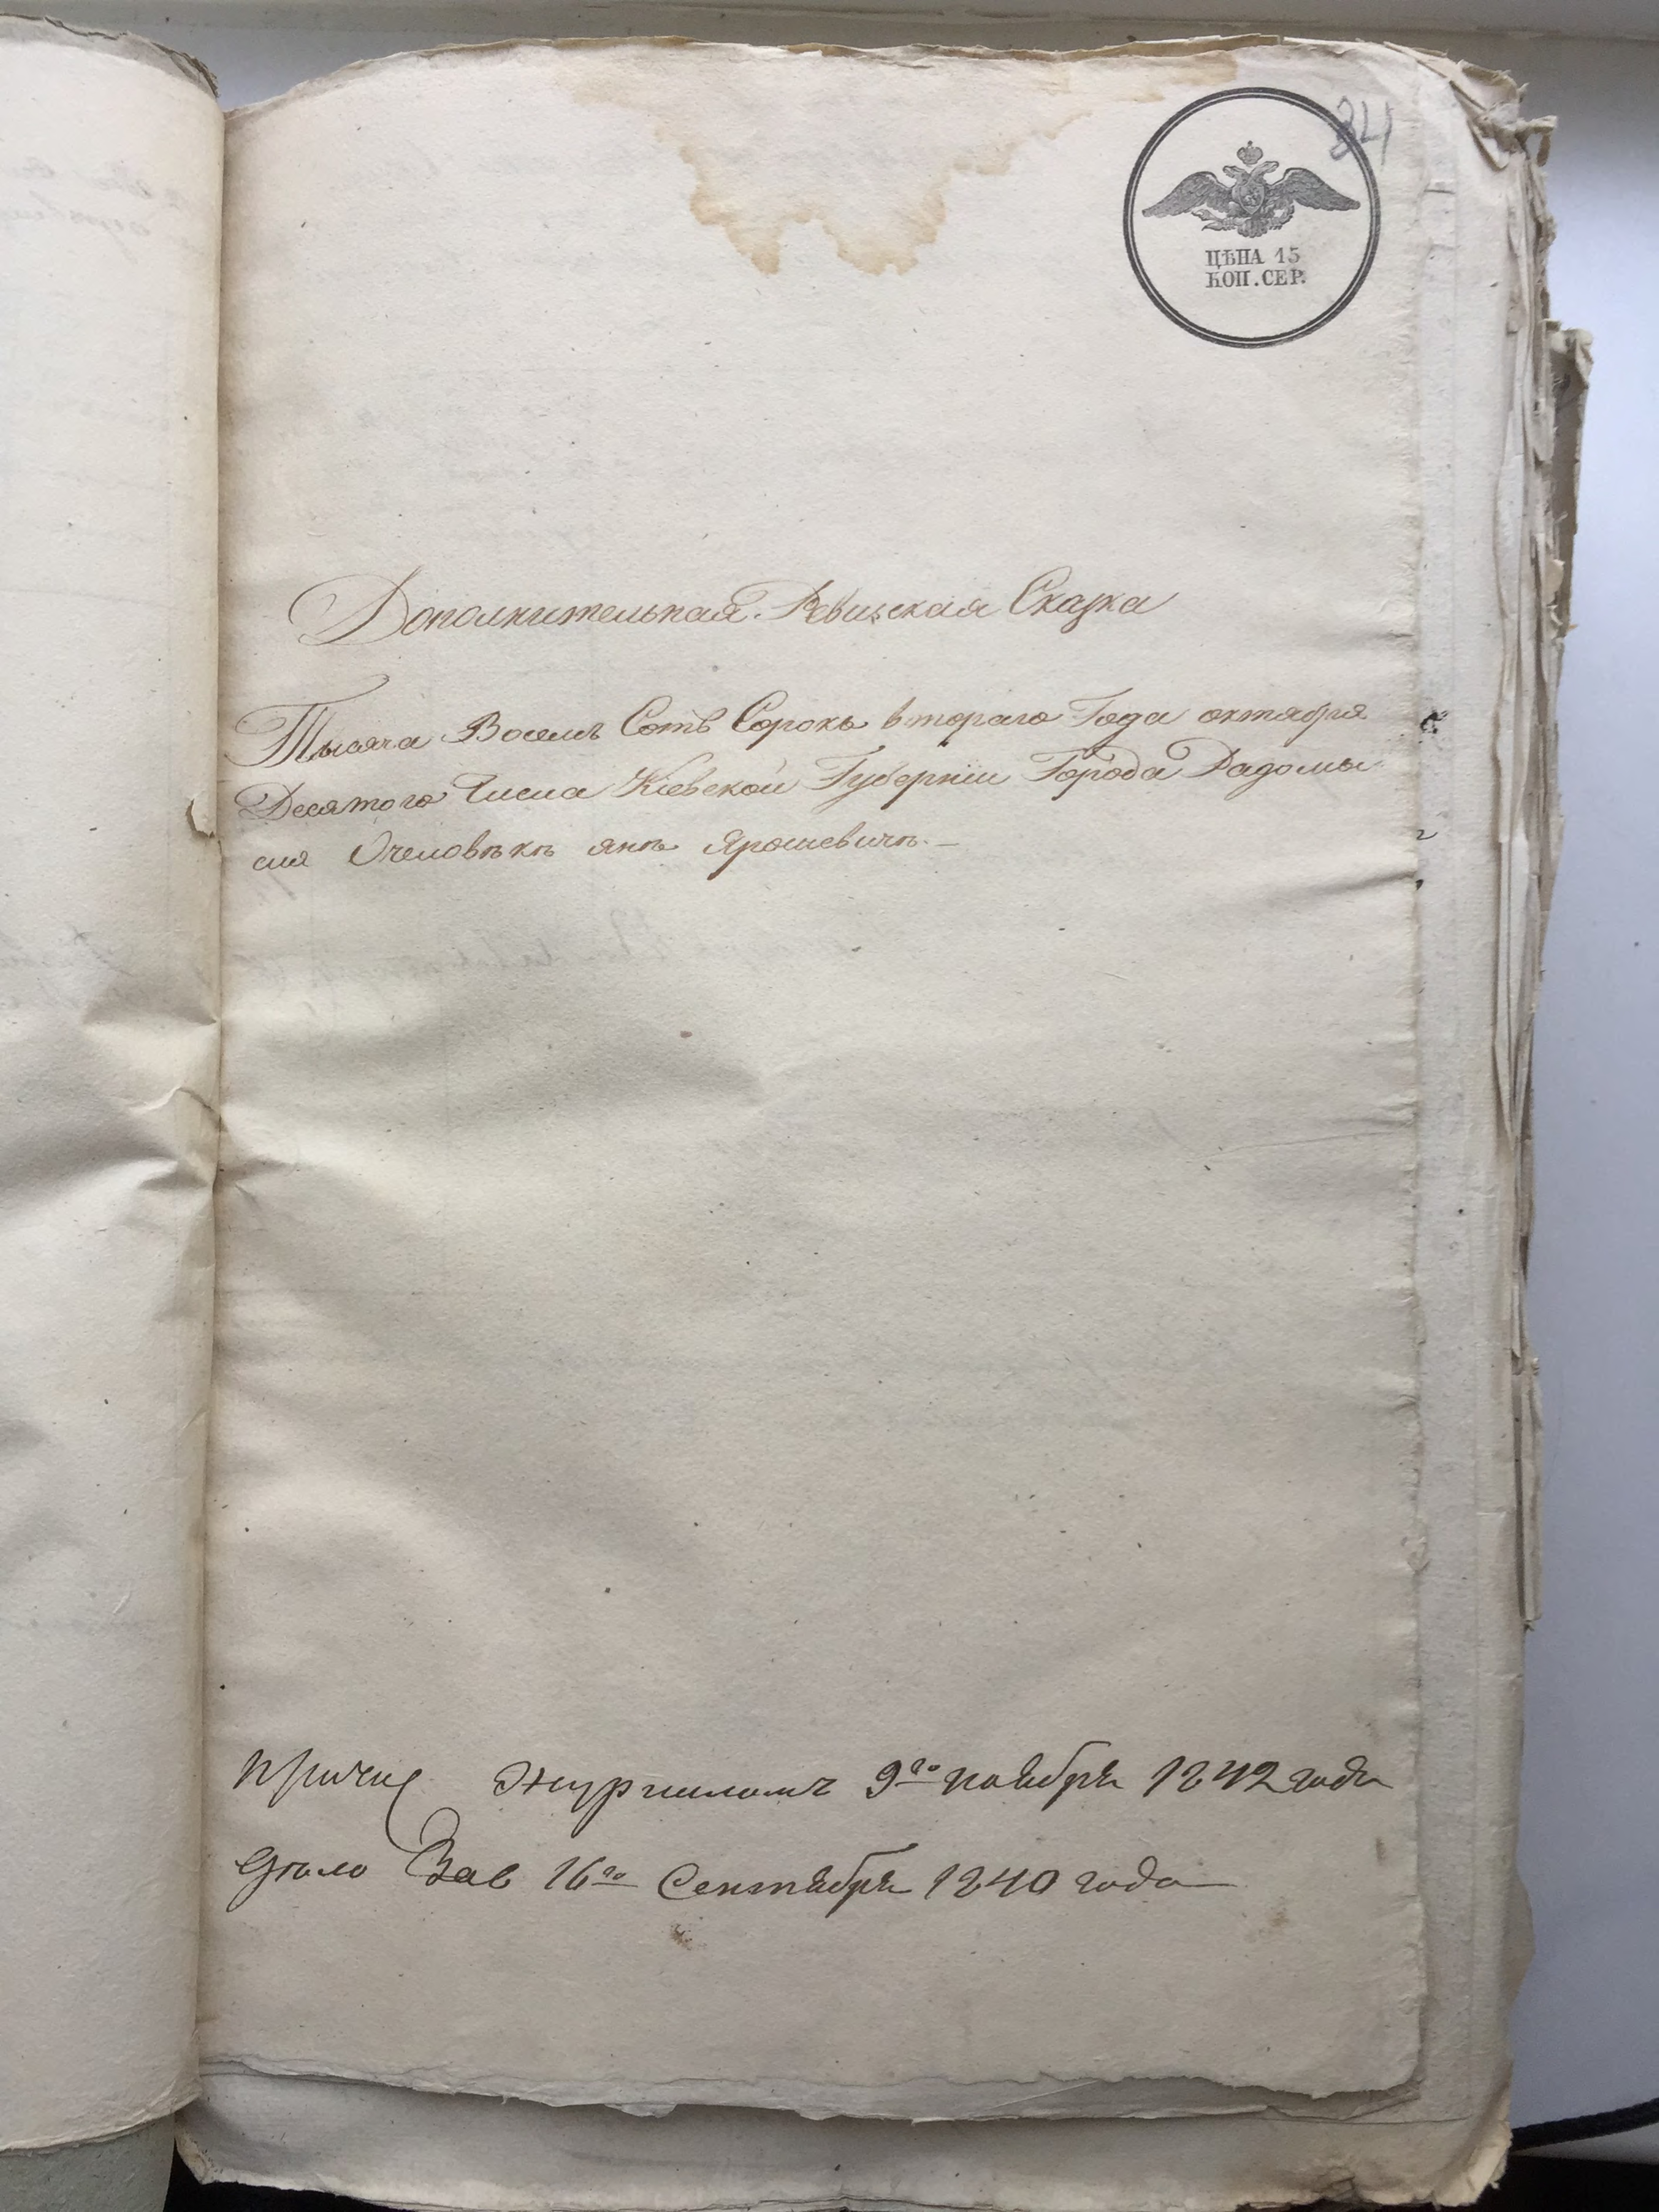 84
ЦѢНА 15
КОП. СЕР.
Дополнительная Ревизская Сказка
Тысяча Восемь Сотъ Сорокъ втораго Года октября
Десятого Числа Кіевской Губерніи Города Радомы
сля Очеловѣкѣ янѣ Ярошевичѣ.
Журналомъ 9го ноября 1842 года
16го Сентября 1840 года